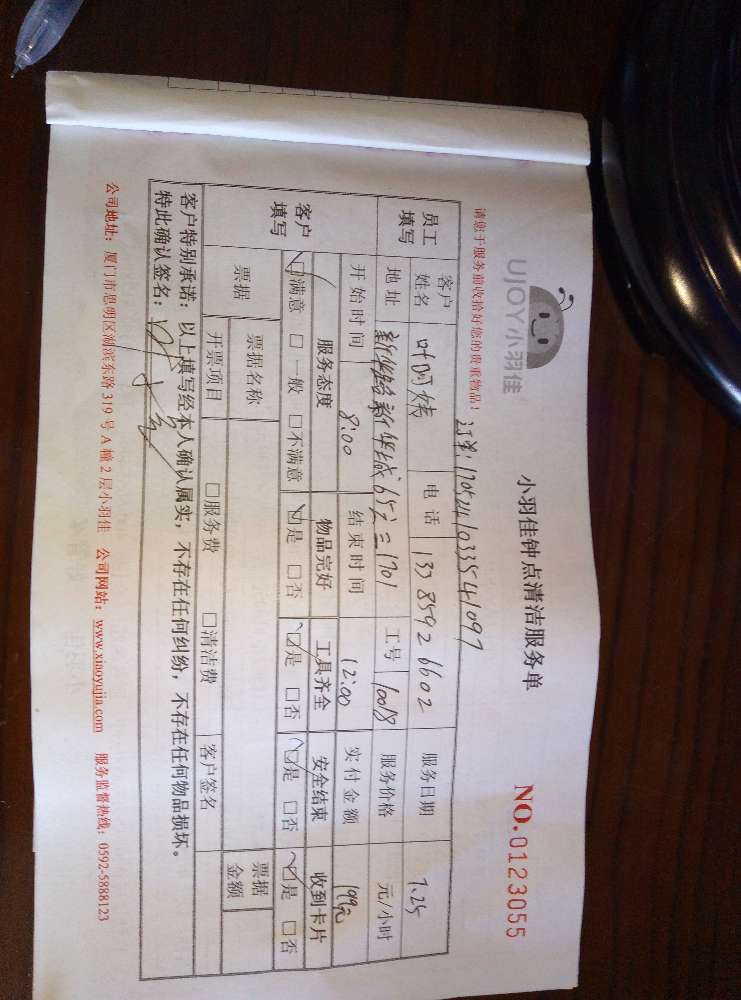 UJOY小羽佳
小羽佳钟点清洁服务单
NO.0123055
请您于服务前收拾好您的贵重物品!
订单:1705241033541097
员工填写 客户姓名 叶阿 电话 13385926602 服务日期 7.25
地址 新华城65之三1701 工号 10018 服务价格 元/小时
客户填写 开始时间 8:00 结束时间 12:00 实付金额 199元
服务态度 物品完好 工具齐全 安全结束 收到卡片
☑满意 □一般 □不满意 ☑是 □否 ☑是 □否 ☑是 □否 ☑是 □否
票据 票据名称 票据金额
开票项目 □服务费 □清洁费 客户签名
客户特别承诺:以上填写经本人确认属实,不存在任何纠纷,不存在任何物品损坏。
特此确认签名:
公司地址:厦门市思明区湖滨东路319号A幢2层小羽佳 公司网站:www.xiaoyujia.com 服务监督热线:0592-5888123